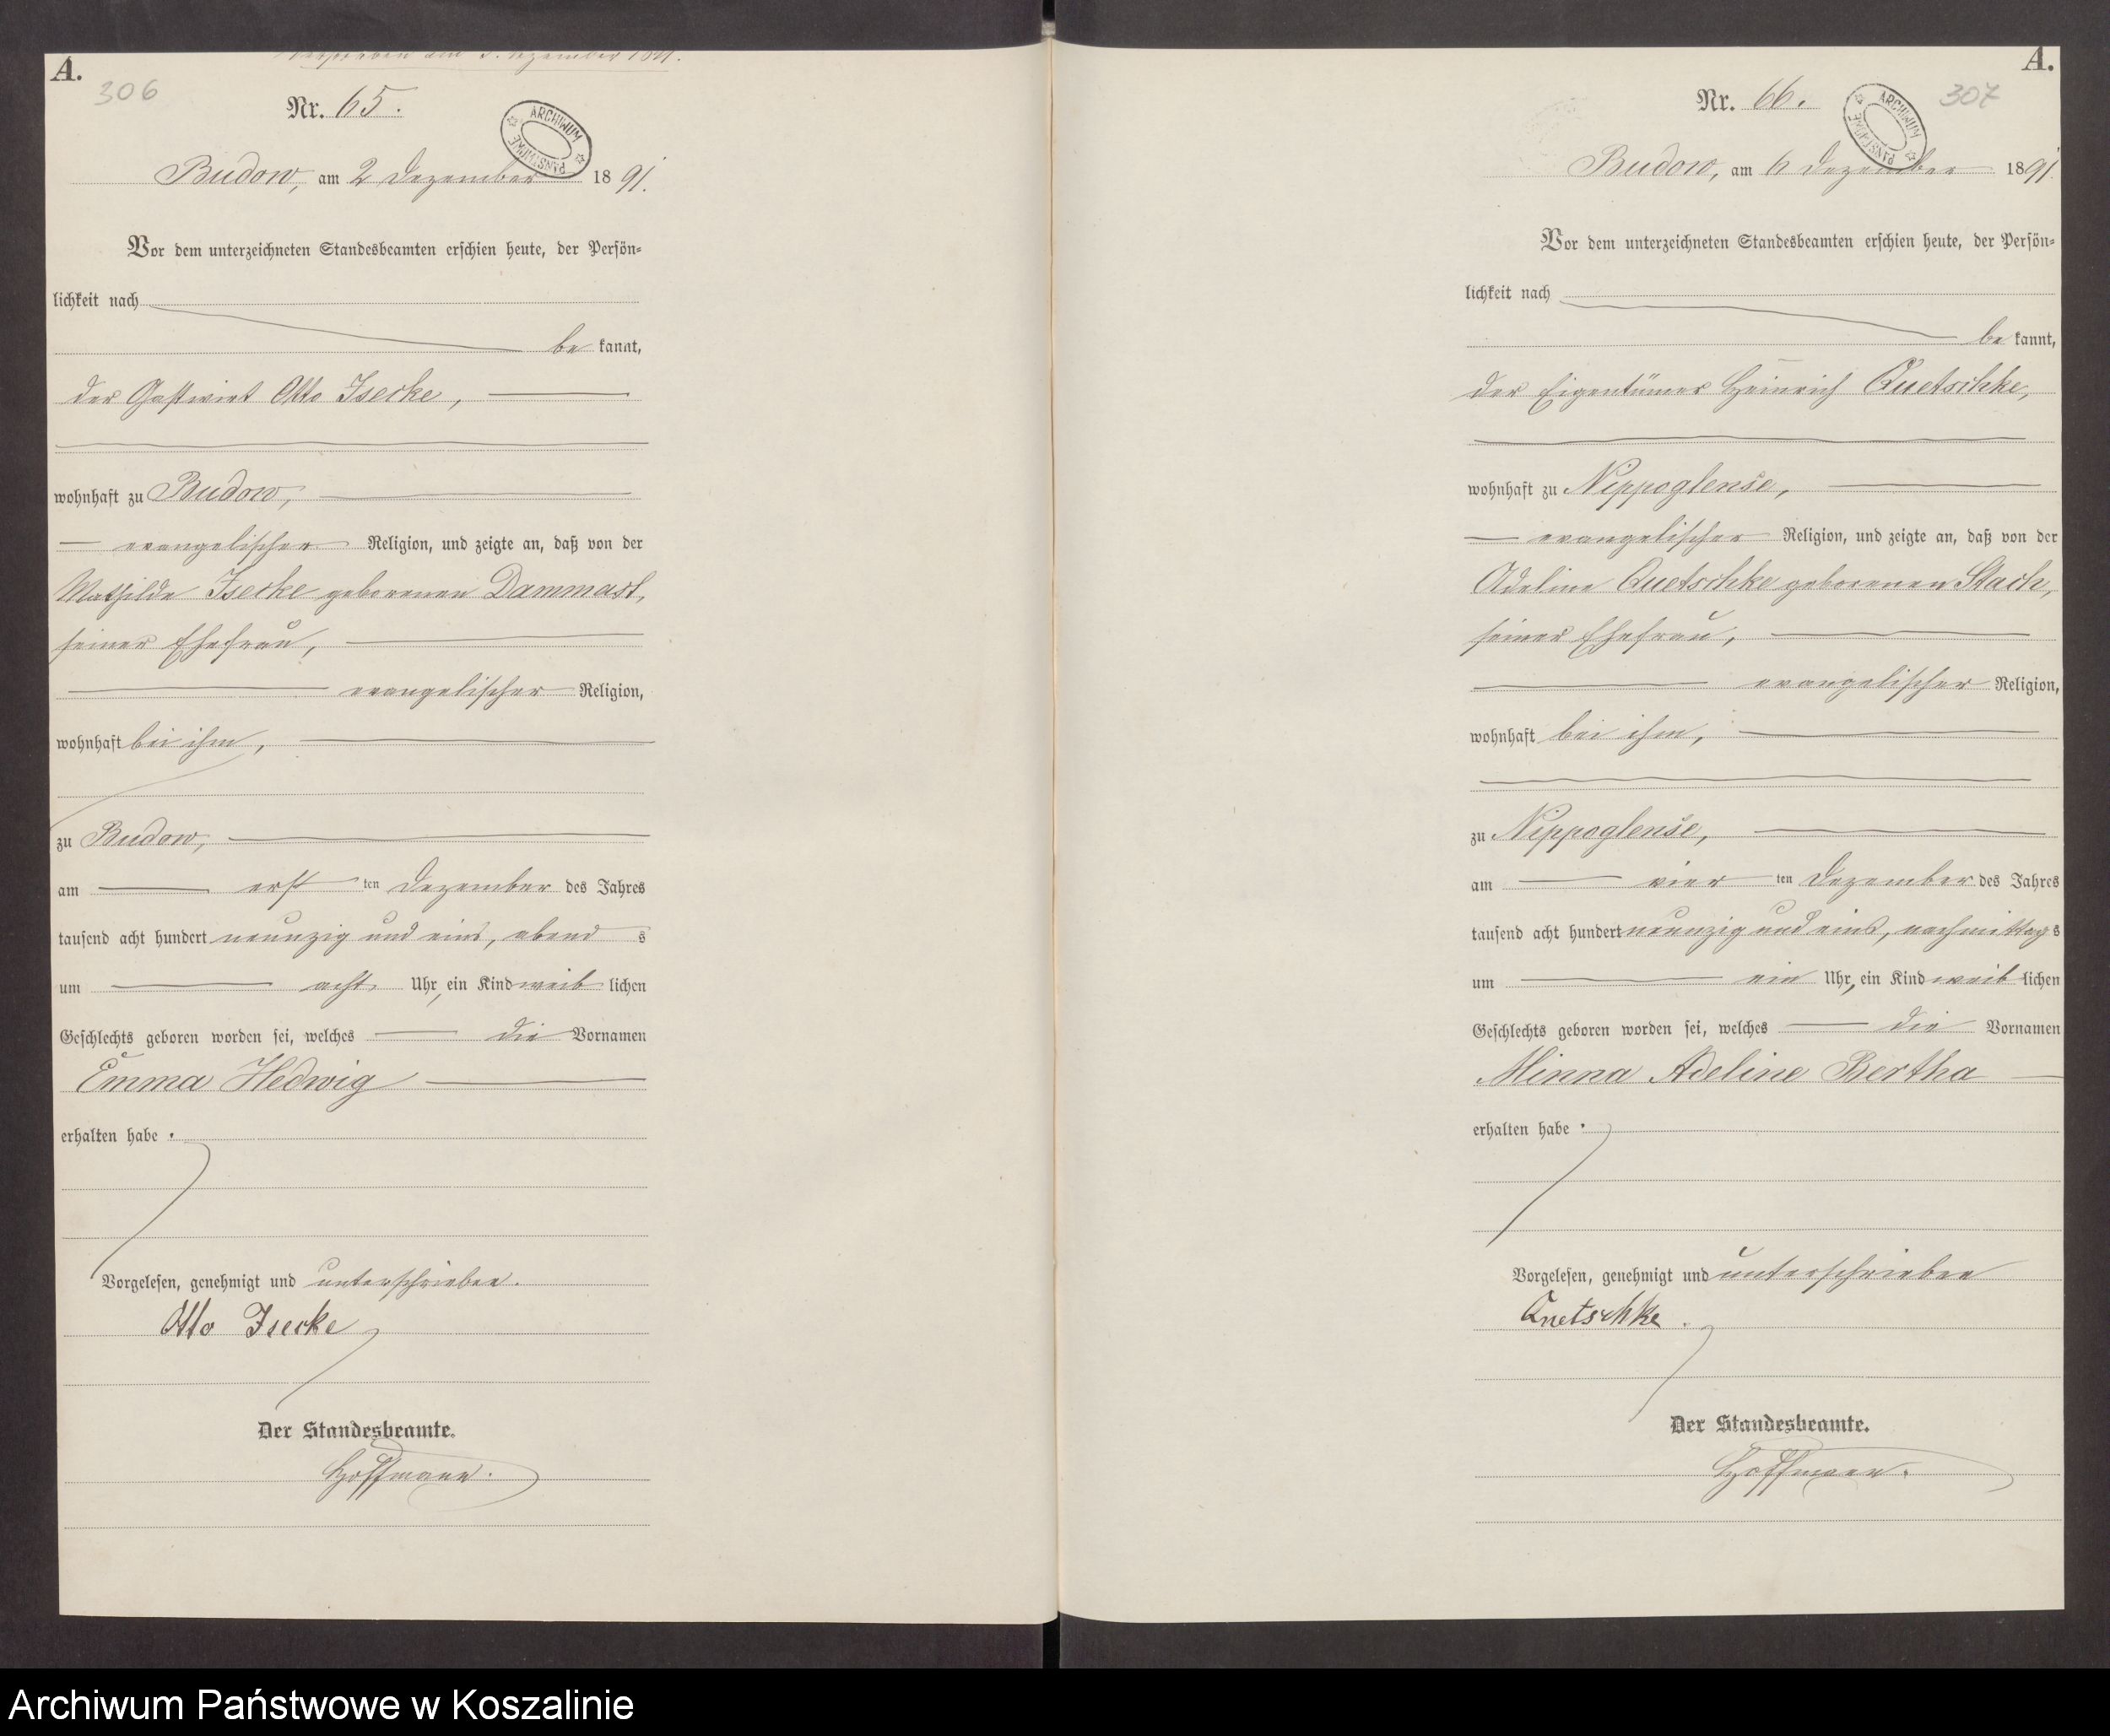 A.
306
Nr. 65.
ARCHIWUM PAŃSTWOWE
Budow, am 2 Dezember 1891.
Vor dem unterzeichneten Standesbeamten erschien heute, der Persön-
lichkeit nach
be kannt,
der Gastwirt Otto Isecke,
wohnhaft zu Budow,
evangelischer Religion, und zeigte an, daß von der
Mathilde Isecke geborenen Dammast,
seiner Ehefrau,
evangelischer Religion,
wohnhaft bei ihm,
zu Budow,
am erst ten Dezember des Jahres
tausend acht hundert neunzig und eins, abend s
um acht Uhr, ein Kind weib lichen
Geschlechts geboren worden sei, welches die Vornamen
Emma Hedwig
erhalten habe.
Vorgelesen, genehmigt und unterschrieben.
Otto Isecke
Der Standesbeamte.
Hoffmann.
A.
307
Nr. 66.
ARCHIWUM PAŃSTWOWE
Budow, am 6 Dezember 1891.
Vor dem unterzeichneten Standesbeamten erschien heute, der Persön-
lichkeit nach
be kannt,
der Eigentümer Heinrich Quetschke,
wohnhaft zu Nippoglense,
evangelischer Religion, und zeigte an, daß von der
Adeline Quetschke geborenen Stach,
seiner Ehefrau,
evangelischer Religion,
wohnhaft bei ihm,
zu Nippoglense,
am vier ten Dezember des Jahres
tausend acht hundert neunzig und eins, nachmittag s
um ein Uhr, ein Kind weib lichen
Geschlechts geboren worden sei, welches die Vornamen
Minna Adeline Bertha
erhalten habe.
Vorgelesen, genehmigt und unterschrieben
Quetschke.
Der Standesbeamte.
Hoffmann.
Archiwum Państwowe w Koszalinie